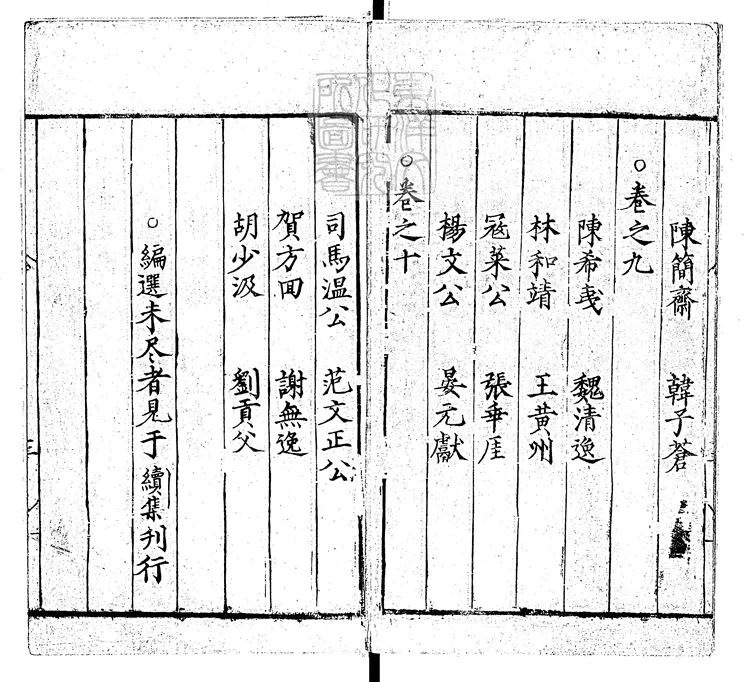 陳簡齋 韓子蒼
○卷之九
陳希夷 魏清逸
林和靖 王黃州
冦萊公 張乖厓
楊文公 晏元獻
○卷之十
司馬温公 范文正公
賀方回 謝無逸
胡少汲 劉貢父
○編選未尽者見于續集刋行